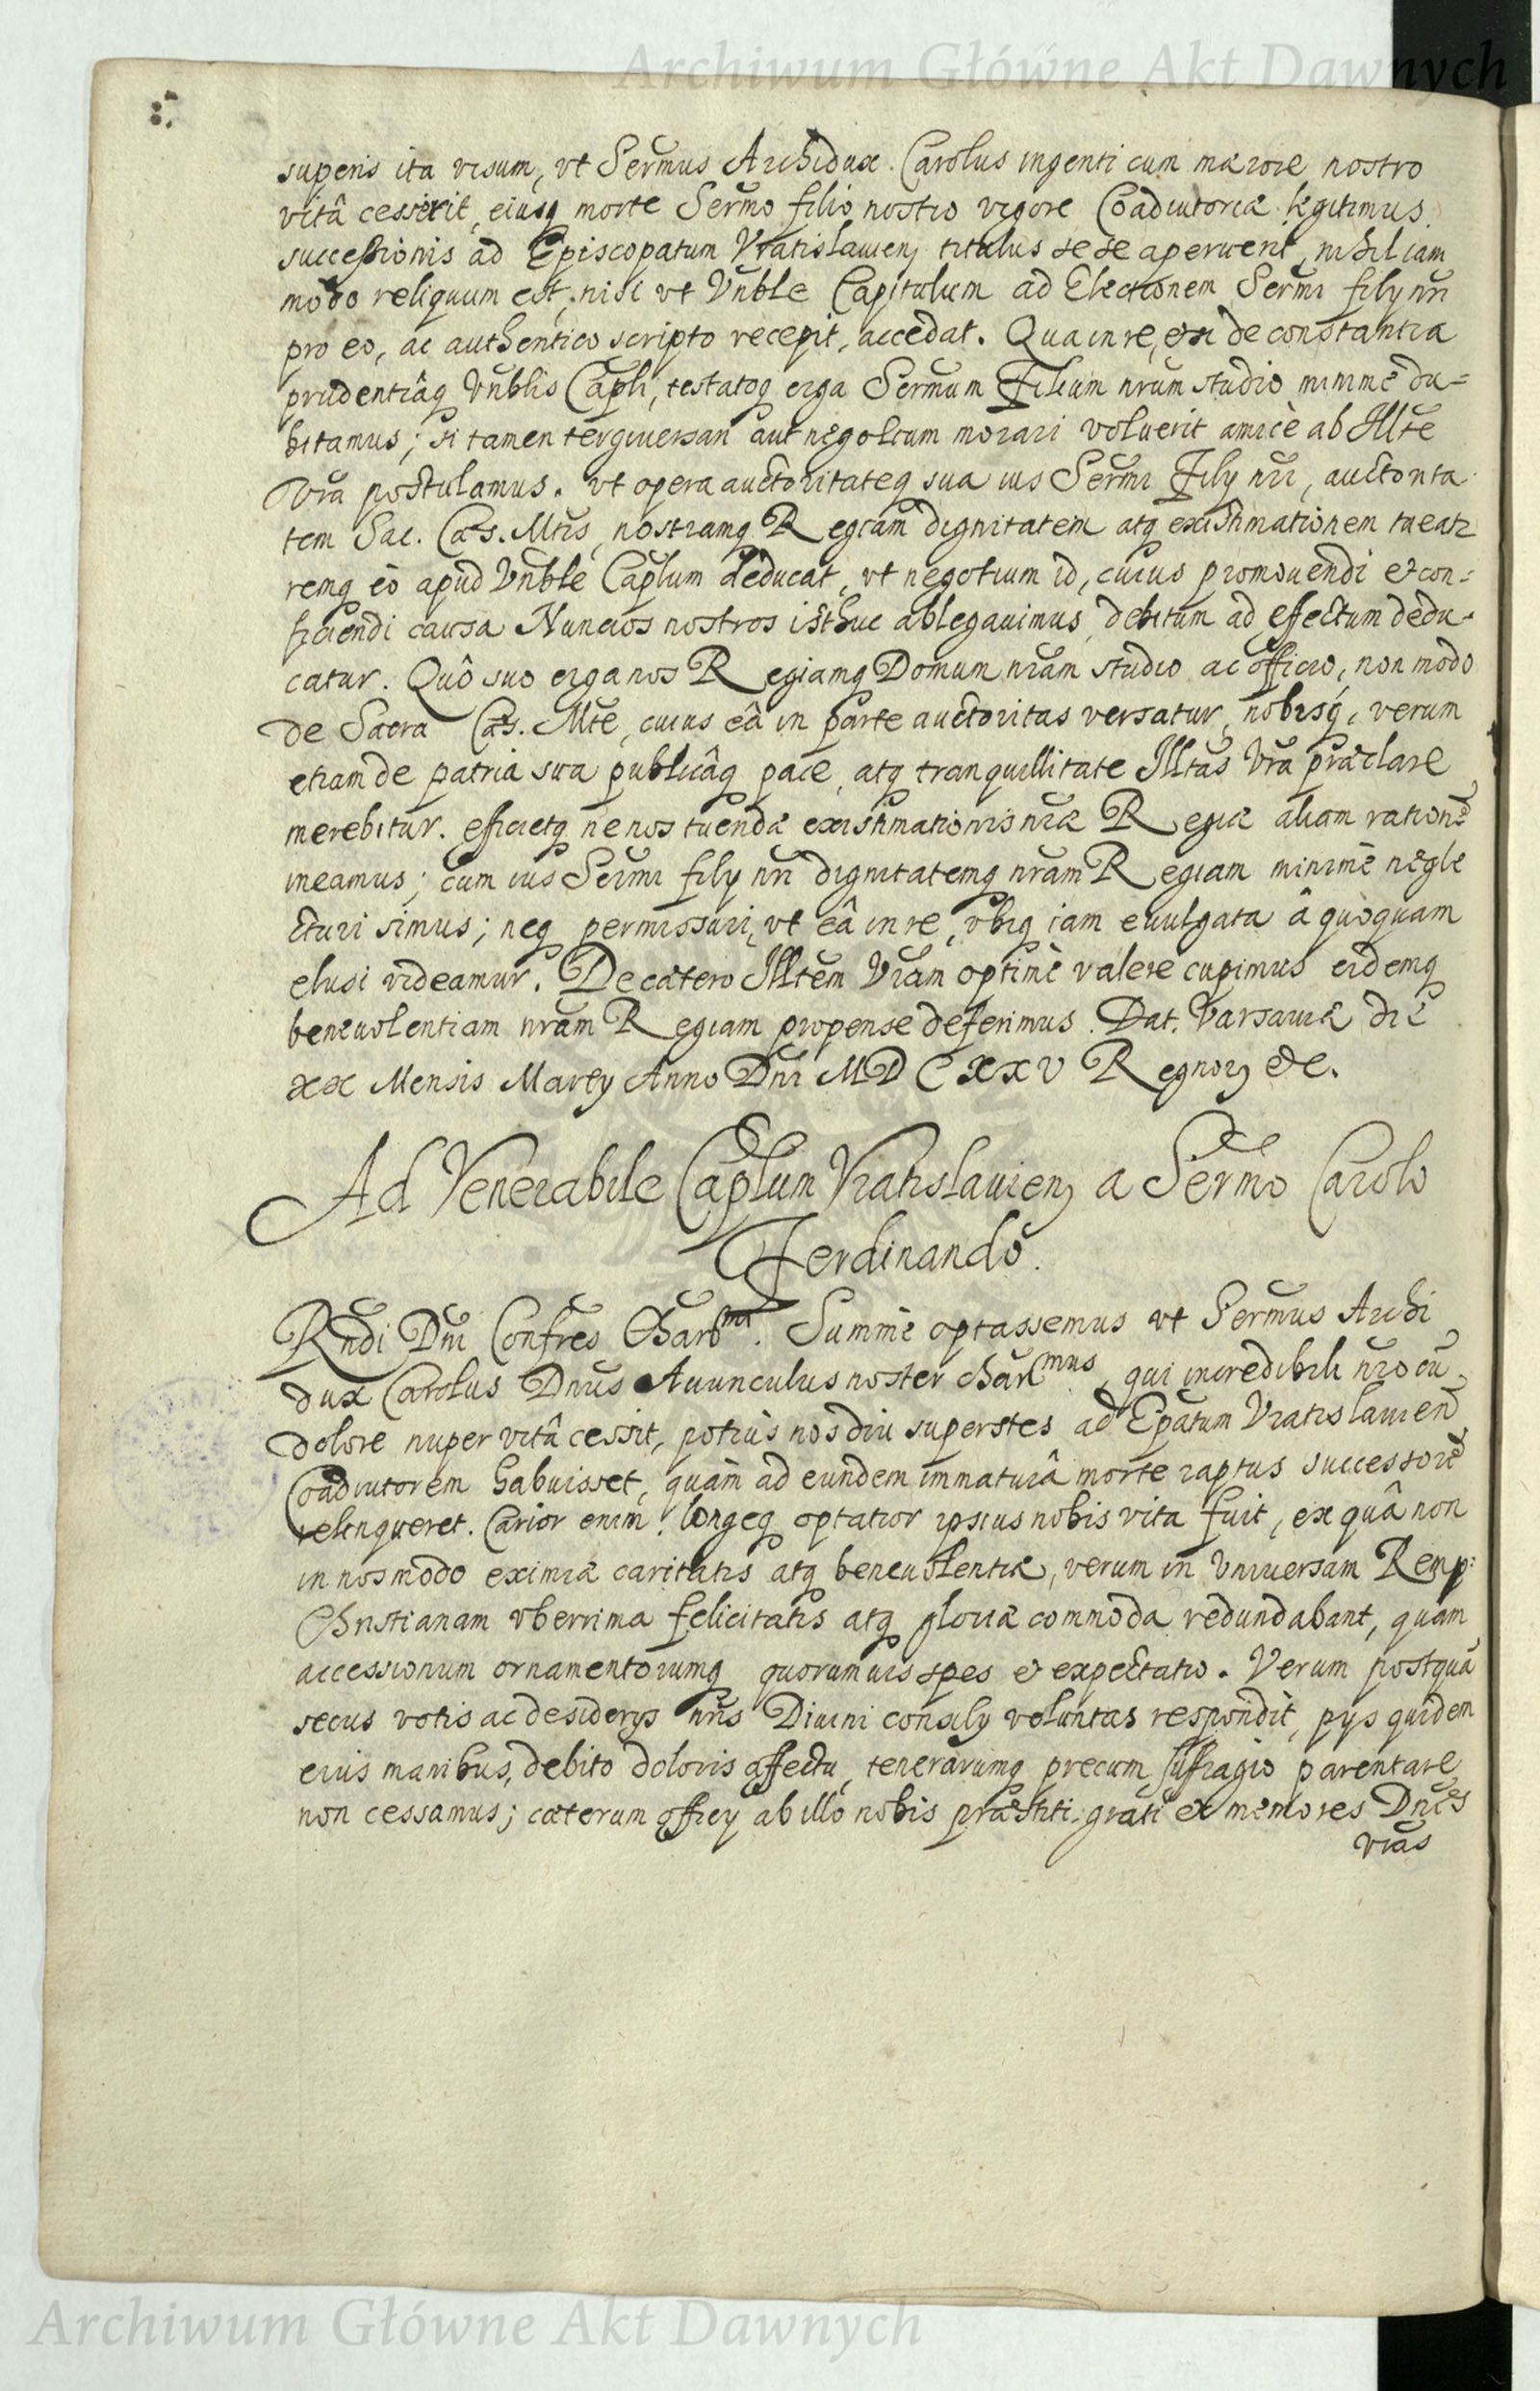 Archiwum Główne Akt Dawnych
superis ita visum, vt Sermus Archidux Carolus ingenti cum mærore nostro
vitâ cesserit, eiusq morte Sermo filio nostro vigore Coadiutoriæ legitimus
successionis ad Episcopatum Vratislauien titulus sese aperuerit, nihil iam
modo reliquum est, nisi vt Vnble Capitulum ad Electionem Sermi fily nri
pro eo, ac authentico scripto recepit, accedat. Qua in re, etsi de constantia
prudentiâq Vnblis Capli, testatoq erga Sermum Filium nrum studio minimè du=
bitamus; si tamen tergiuersari aut negotium morari voluerit amicè ab Illte
Vra postulamus. vt opera auctoritateq sua ius Sermi Fily nri, auctorita
tem Sac. Cæs. Mtis, nostramq Regiam dignitatem atq existimationem tueatr
remq eò apud Vnble Caplum deducat, vt negotium id, cuius promouendi et con=
ficiendi causa Nuncios nostros isthuc ablegauimus, debitum ad effectum dedu-
catur. Quô suo erga nos Regiamq Domum nram studio ac officio, non modo
de Sacra Cæs. Mte, cuius eâ in parte auctoritas versatur, nobisq, verum
etiam de patria sua publicâq pace, atq tranquillitate Illtas Vra præclare
merebitur. efficietq ne nos tuendæ existimationis nræ Regiæ aliam rationē
ineamus; cum ius Sermi fily nri dignitatemq nram Regiam minimè negle
cturi simus; neq permissuri, vt eâ in re, vbiq iam euulgata â quoquam
elusi videamur. De cætero Illtem Vram optimè valere cupimus eidemq
beneuolentiam nram Regiam propense deferimus. Dat. Varsauiæ die
xx Mensis Marty Anno Dni MDCXXV Regnor etc.
Ad Venerabile Caplum Vratislauien a Sermo Carolo
Ferdinando.
Rndi Dni Confres Charmi. Summè optassemus vt Sermus Archi
dux Carolus Dnus Auunculus noster charmus, qui incredibili nro cū
dolore nuper vitâ cessit, potius nos diu superstes ad Epatum Vratislauien
Coadiutorem habuisset, quàm ad eundem immaturâ morte raptus successorē
relinqueret. Carior enim longeq optatior ipsius nobis vita fuit, ex quâ non
in nos modo eximiæ caritatis atq beneuolentiæ, verum in Vniuersam Remp:
Christianam vberrima felicitatis atq gloriæ commoda redundabant, quam
accessionum ornamentorumq quorumuis spes et expectatio. Verum postquā
secus votis ac desiderys nris Diuini consily voluntas respondit, pys quidem
eius manibus, debito doloris affectu, tenerarumq precum suffragio parentare
non cessamus; cæterum officy ab illo nobis præstiti grati et memores Dnes
vras
Archiwum Główne Akt Dawnych